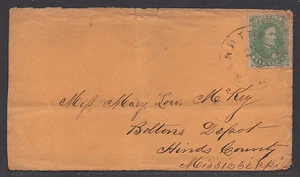 Miss Mary Lou. McKey
Boltons Depot
Hinds County
Mississippi